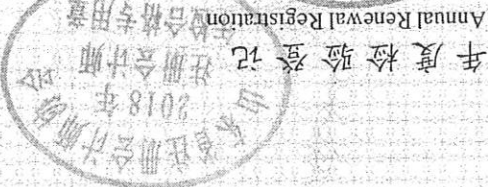 年度检验登记
Annual Renewal Registration
山东省注册会计师协会
2018年
注册会计师
年检合格专用章